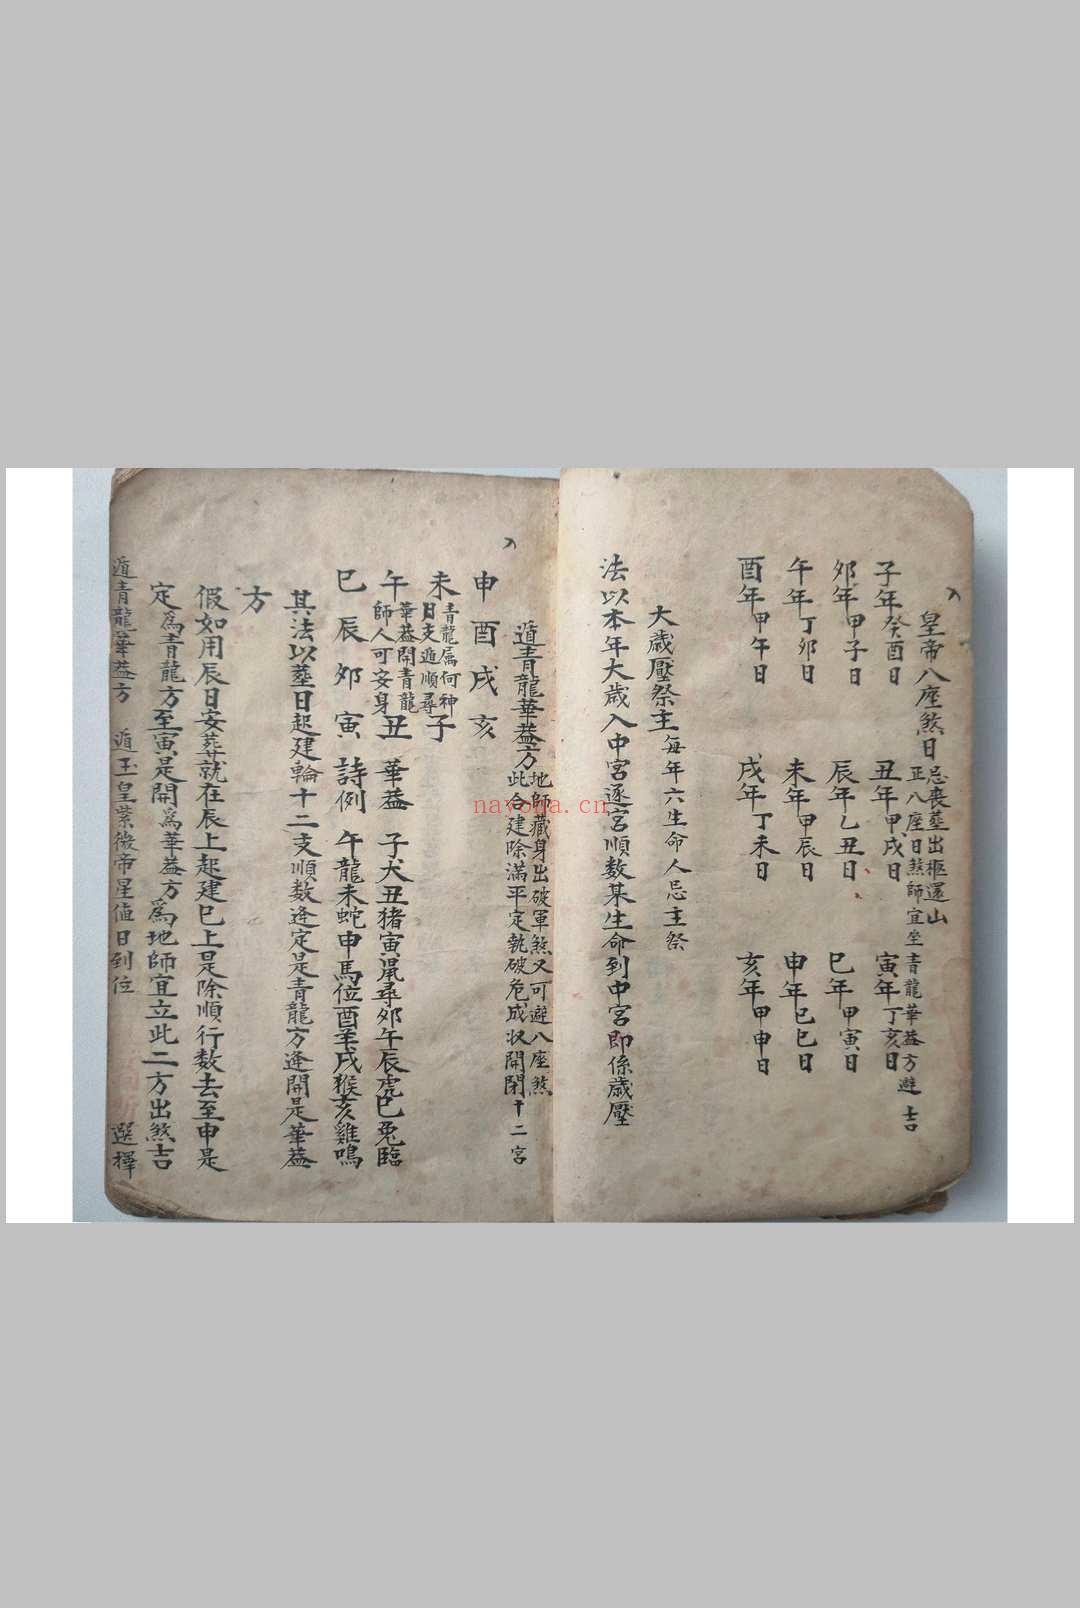 皇帝八座煞日 忌喪塟出柩還山 正八座日煞師宜坐青龍華葢方避吉
子年癸酉日 丑年甲戌日 寅年丁亥日
卯年甲子日 辰年乙丑日 巳年甲寅日
午年丁卯日 未年甲辰日 申年己巳日
酉年甲午日 戌年丁未日 亥年甲申日
大歲壓祭主 每年六生命人忌主祭
法以本年大歲入中宮逐宮順数某生命到中宮即係歲壓
遁青龍華葢方 地師藏身出破軍煞又可避八座煞 此合建除滿平定執破危成收開閉十二宮
申酉戌亥
未 青龍属何神 日支遁順尋 子
午 華葢開青龍 師人可安身 丑 華葢 子犬丑猪寅鼠尋卯午辰虎巳兎臨
巳辰卯寅 詩例 午龍未蛇申馬位酉羊戌猴亥雞鳴
其法以塟日起建輪十二支順数逢定是青龍方逢開是華葢
方
假如用辰日安葬就在辰上起建巳上是除順行数去至申是
定爲青龍方至寅是開爲華葢方爲地師宜立此二方出煞吉
遁青龍華葢方 遁玉皇紫微帝星值日到位 選擇
nayona.cn